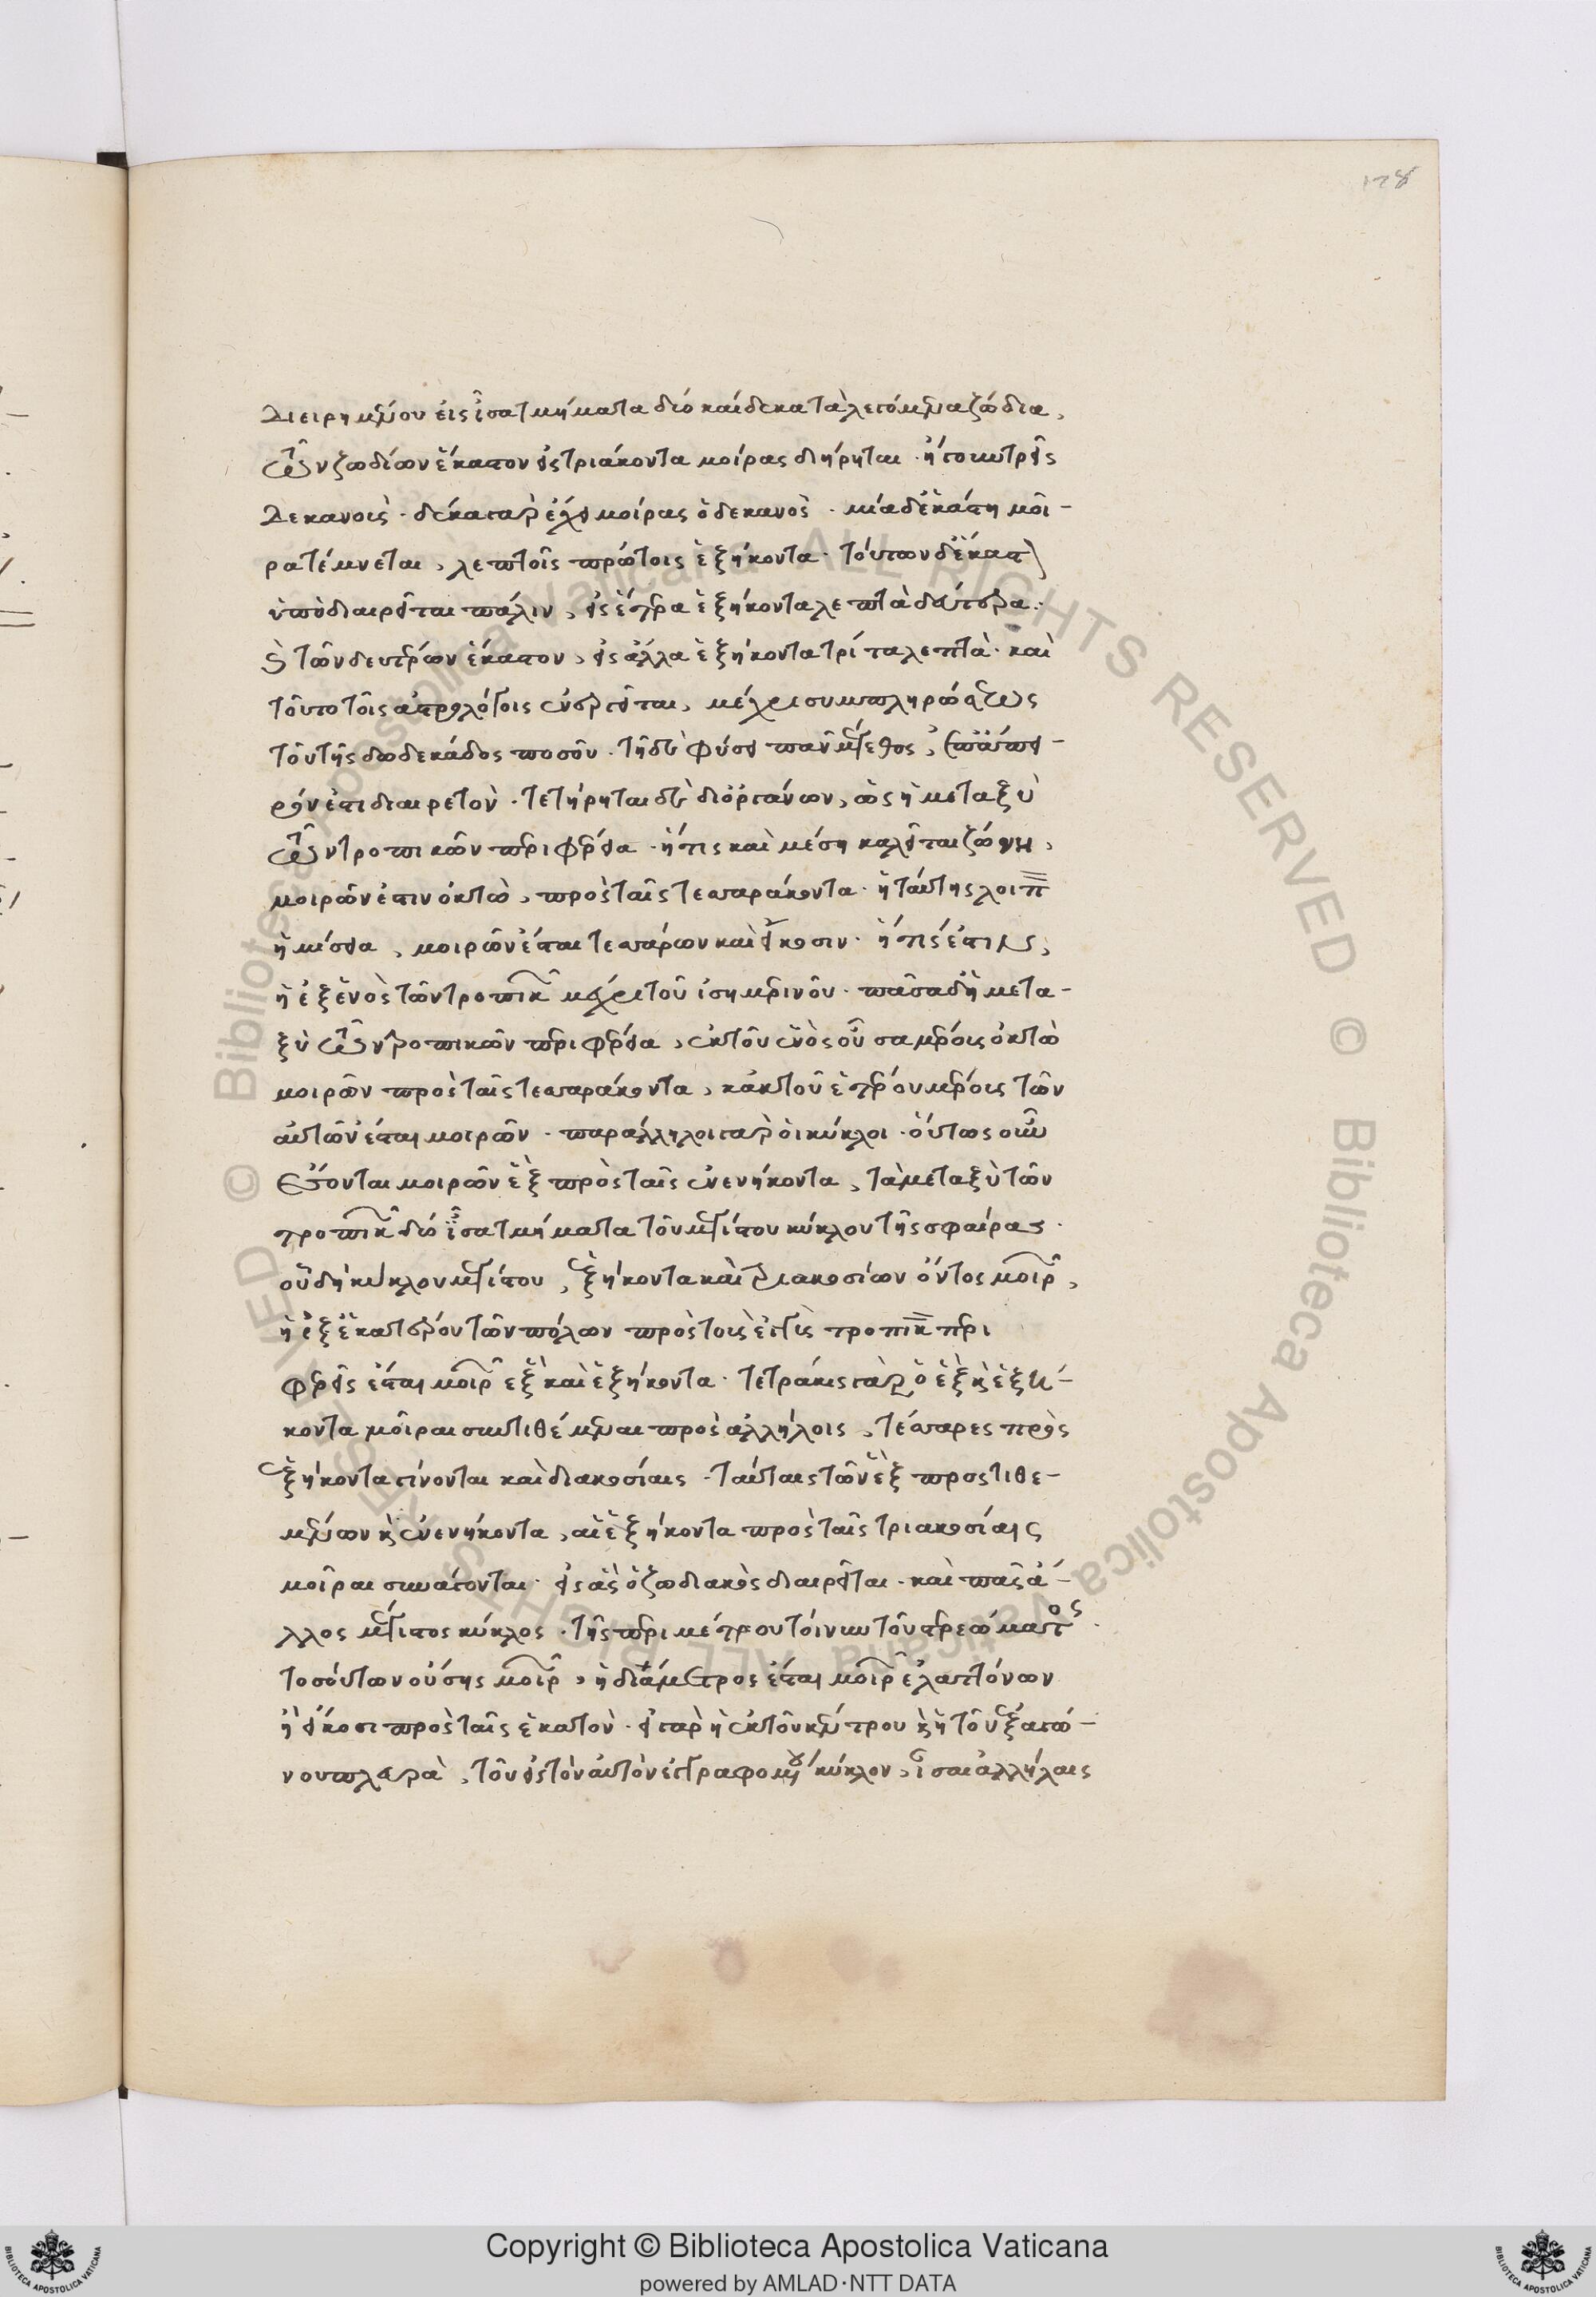 178
διειρημένου εἰς ἴσα τμήματα δυό καίδεκα τὰ λεγόμενα ζώδια,
τῶν ζωδίων ἕκαστον εἰς τριάκοντα μοίρας διήρηται . ἤγουν τρεῖς
δεκανοὺς . δέκα γὰρ ἔχει μοίρας ὁ δεκανὸς . μία δ' ἑκάστη μοῖ-
ρα τέμνεται, λεπτοῖς πρώτοις ἑξήκοντα . τούτων δ' ἕκαστ
ὑποδιαιρεῖται πάλιν, εἰς ἕτερα ἑξήκοντα λεπτὰ δεύτερα .
καὶ τῶν δευτέρων ἕκαστον, εἰς ἄλλα ἑξήκοντα τρίτα λεπτὰ . καὶ
τοῦτο τοῖς ἀστρολόγοις εὑρεῖται, μέχρι συμπληρώσεως
τοῦ τῆς δωδεκάδος ποσοῦ . τῇ δὲ φύσει πᾶν μέγεθος, ἐπ' ἄπει-
ρόν ἐστι διαιρετὸν . τετήρηται δὲ δι' ὀργάνων, ὡς ἡ μεταξὺ
τῶν τροπικῶν περιφέρεια . ἥτις καὶ μέση καλεῖται ζώνη,
μοιρῶν ἐστιν ὀκτὼ, πρὸς ταῖς τεσσαράκοντα . ἡ ταύτης λοιπ
ἡμίσεια, μοιρῶν ἔσται τεσσάρων καὶ εἴκοσιν . ἥτις ἐστιν,
ἡ ἐξ ἑνὸς τῶν τροπικῶν μέχρι τοῦ ἰσημερινοῦ . πᾶσα δ' ἡ μετα-
ξὺ τῶν τροπικῶν περιφέρεια, ἐκ τοῦ ἑνὸς οὖσα μέρους ὀκτὼ
μοιρῶν πρὸς ταῖς τεσσαράκοντα, κἀκ τοῦ ἑτέρου μέρους τῶν
αὐτῶν ἔσται μοιρῶν . παράλληλοι γὰρ οἱ κύκλοι . οὕτως οὖν
ἔσονται μοιρῶν ἓξ πρὸς ταῖς ἐνενήκοντα, τὰ μεταξὺ τῶν
τροπικῶν δυό ἴσα τμήματα τοῦ μεγίστου κύκλου τῆς σφαίρας .
οὗ δὴ κύκλου μεγίστου, ἑξήκοντα καὶ τριακοσίων ὄντος μοιρῶν,
ἡ ἐξ ἑκατέρου τῶν πόλων πρὸς τοὺς ἐγγὺς τροπικ περι
φέρεια ἔσται μοιρῶν ἓξ καὶ ἑξήκοντα . τετράκις γὰρ αἱ ἓξ καὶ ἑξή-
κοντα μοῖραι συντιθέμεναι πρὸς ἀλλήλοις, τέσσαρες πρὸς
ἑξήκοντα γίνονται καὶ διακοσίαις . ταύταις τῶν ἓξ προστιθε-
μένων καὶ ἐνενήκοντα, αἱ ἑξήκοντα πρὸς ταῖς τριακοσίαις
μοῖραι συνάγονται . εἰς ἃς ὁ ζωδιακὸς διαιρεῖται . καὶ πᾶς ἄ-
λλος μέγιστος κύκλος . τῆς περιμέτρου τοίνυν τοῦ στερεώματος .
τοσούτων οὔσης μοιρῶν, ἡ διάμετρος ἔσται μοιρῶν ἐλαττόνων
ἢ εἴκοσι πρὸς ταῖς ἑκατὸν . εἰ γὰρ ἡ ἐκ τοῦ κέντρου καὶ ἡ τοῦ ἑξαγώ-
νου πλευρὰ, τοῦ εἰς τὸν αὐτὸν ἐγγραφομένου κύκλον, ἴσαι ἀλλήλαις
Copyright © Biblioteca Apostolica Vaticana
powered by AMLAD·NTT DATA